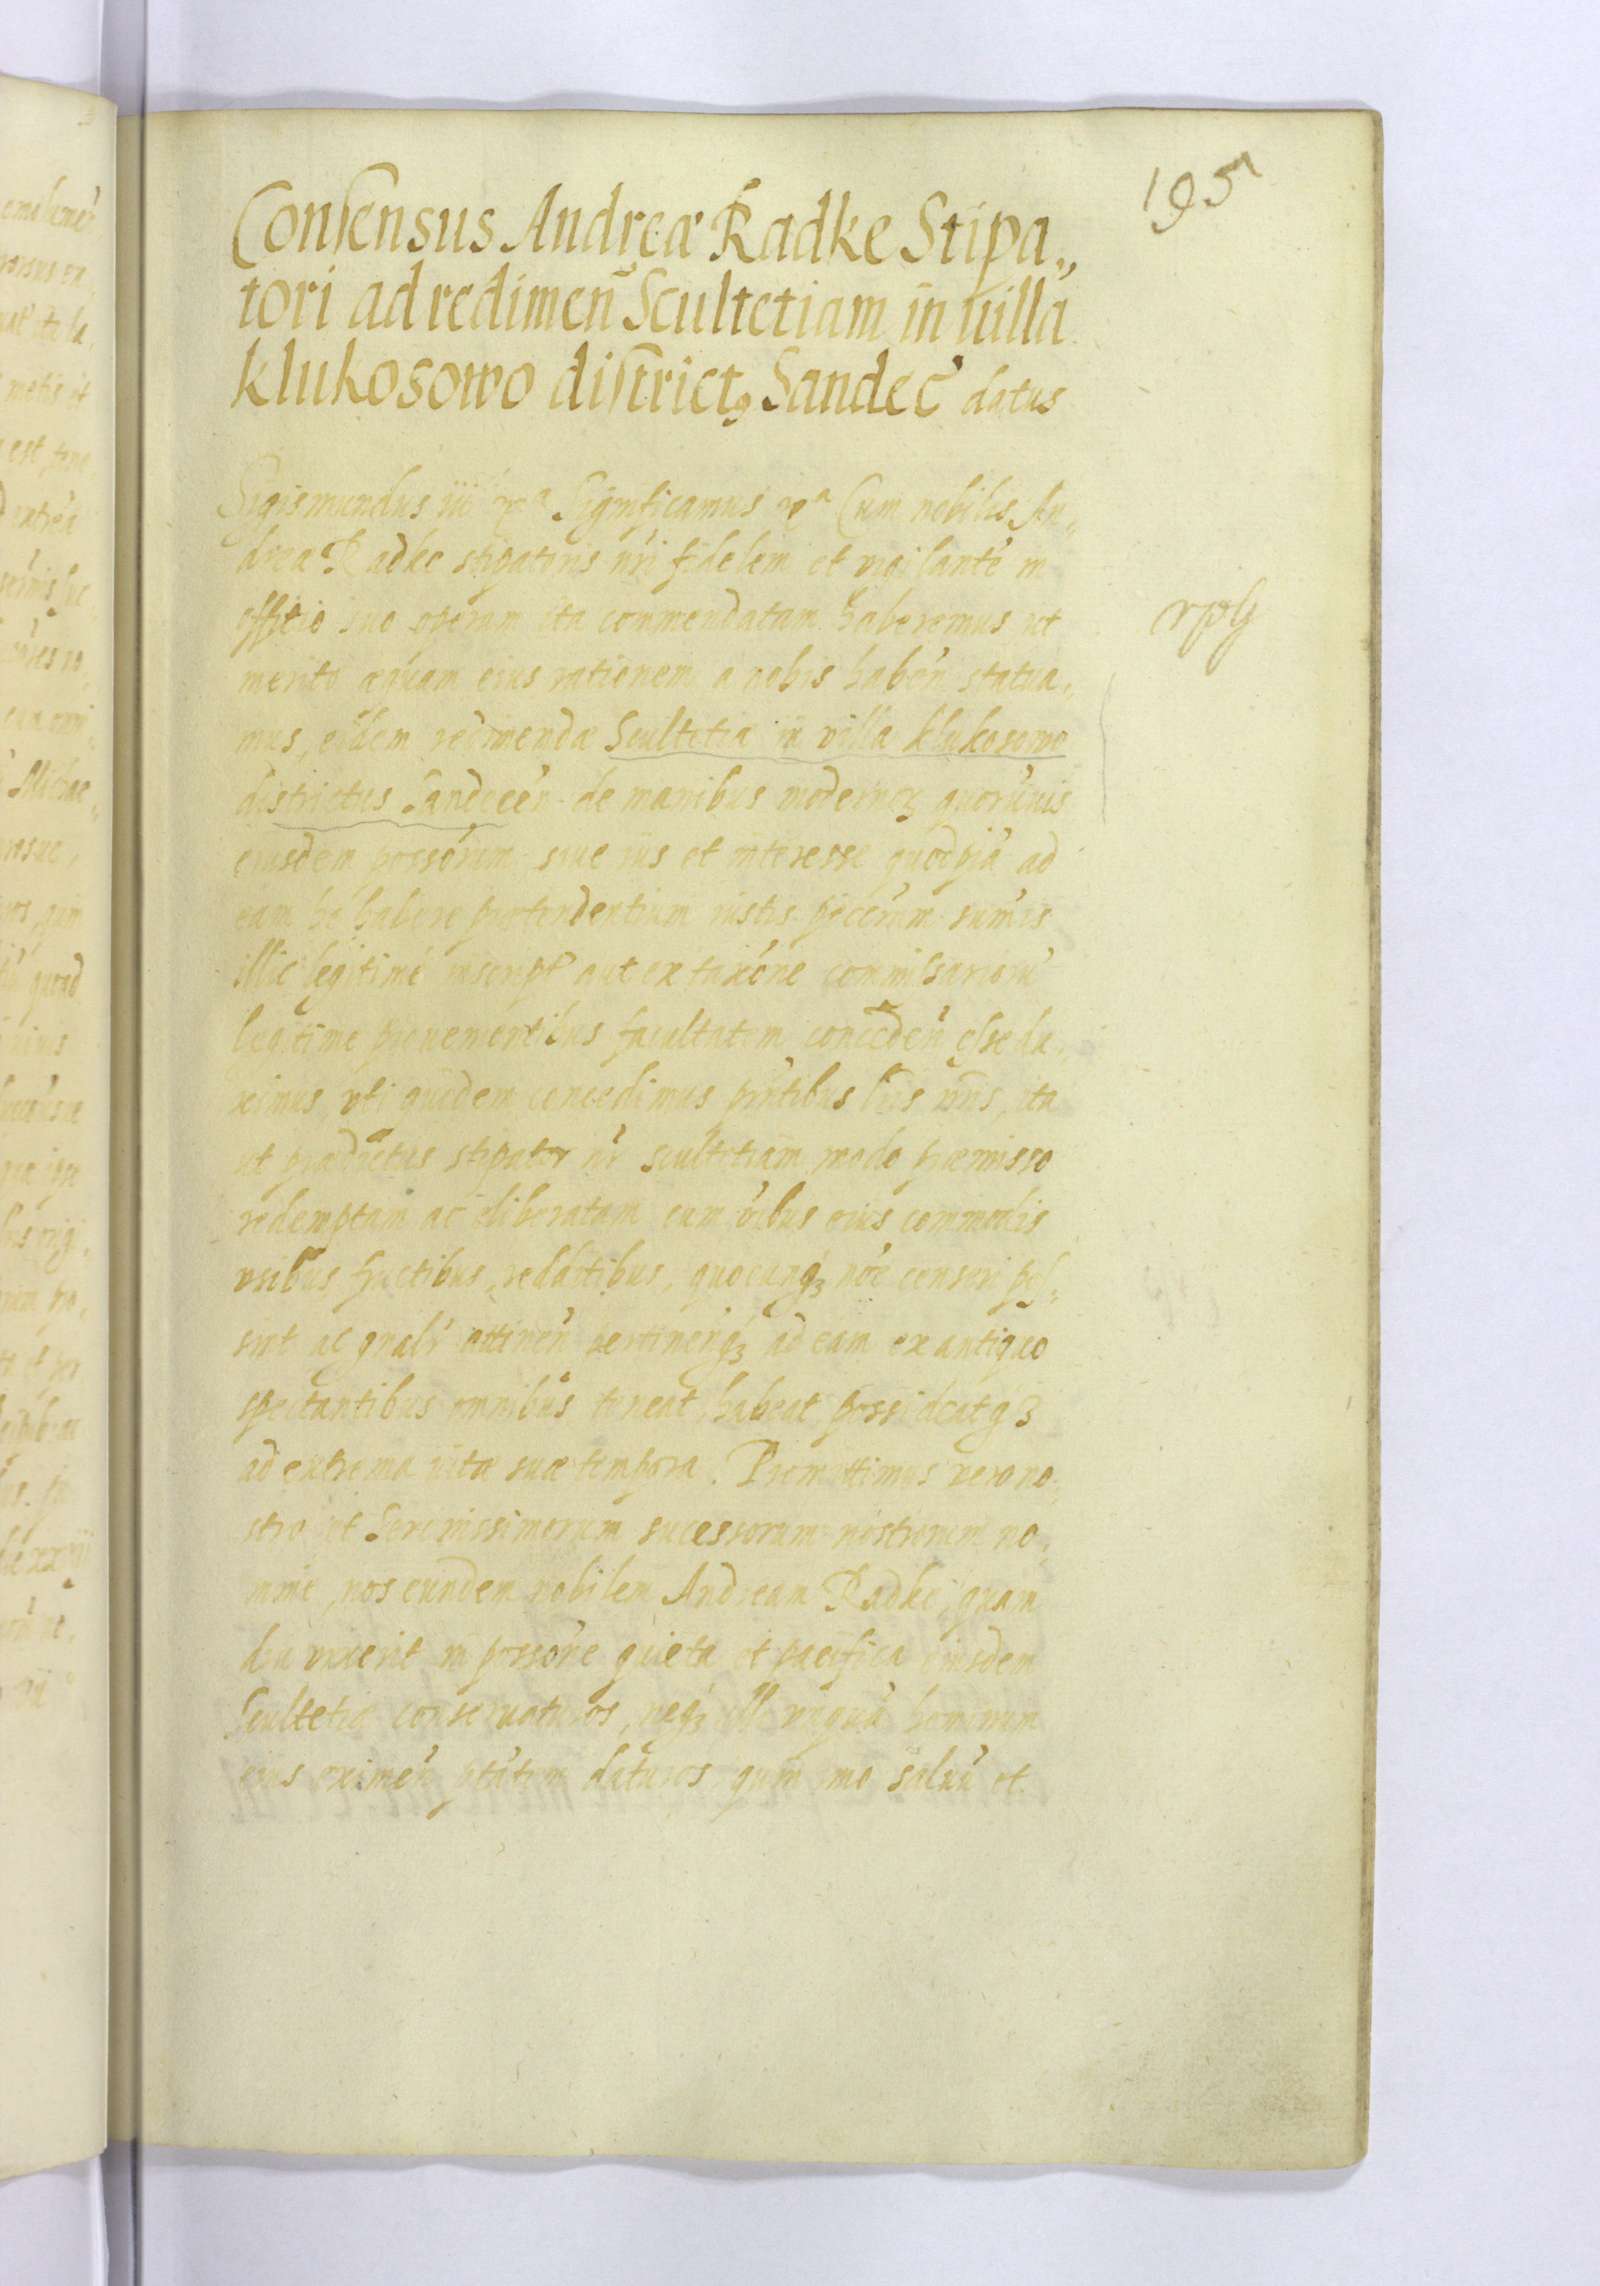 195
Consensus Andreæ Radke Stipa„
tori ad redimeñ Scultetiam in uilla
klukosowo districtꝰ Sandeč datus
Sigismundus iii Significamus Cum nobilis An„
dreæ Radke stipatoris nr̃i fidelem et vigilantẽ in
offitio suo operam ita commendatam haberemus ut
merito æquam eius rationem a nobis habeñ statua„
mus, eidem redimendæ Scultetiæ in villa klukosowo
districtus Sandeceñ de manibus modernoꝝ quorũuis
eiusdem possõrum siue ius et interesse quodpiã ad
eam hẽ habere prætendentium iustis pẽcũrum sum̃is
illic legitimè inscript aut ex taxõne commissariorũ
legitime prouenientibus facultatem concedeñ esse du„
ximus, vti quidem concedimus pñtibus lr̃is nr̃is, ita
ut prædictus stipator nr̃ scultetiam modo præmisso
redemptam ac eliberatam cum oĩbus eius commodis
vsibus fructibus, redditibus, quocunqꝫ noĩe censeri pos„
sint ac gñalr attineñ pertineñqꝫ ad eam ex antiquo
spectantibus omnibus teneat, habeat possideatqꝫ
ad extrema uitæ suæ tempora. Promittimus vero no„
stro et Serenissimorum sucessorum nostrorum no„
mine, nos eundem nobilem Andream Radke, quam
diu vixerit in possõne quieta et pacifica eiusdem
Scultetiæ conseruaturos, neqꝫ vnquã hominum
eius eximeñ ptãtem daturos, quin imo saluũ et